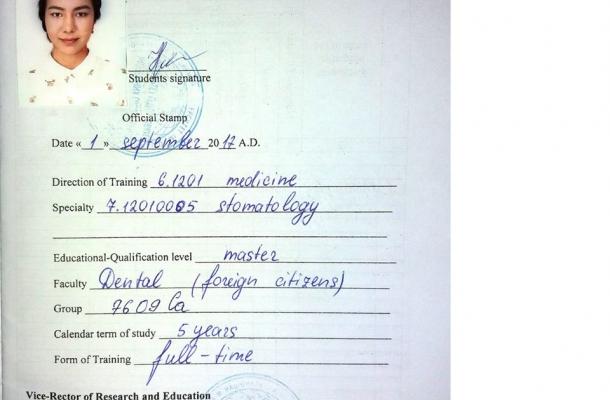 Students signature
Official Stamp
Date « 1 » september 2017 A.D.
Direction of Training 6.1201 medicine
Specialty 7.12010005 stomatology
Educational-Qualification level master
Faculty Dental (foreign citizens)
Group 7609 Ca
Calendar term of study 5 years
Form of Training full-time
Vice-Rector of Research and Education